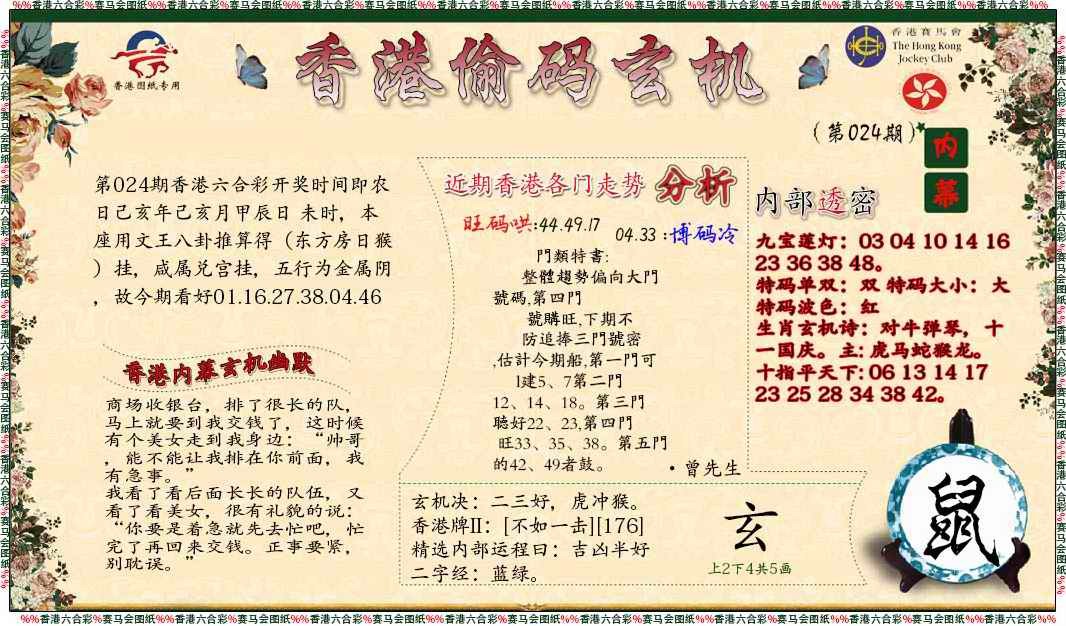 %%香港六合彩%赛马会图纸%%香港六合彩%赛马会图纸%%香港六合彩%赛马会图纸%%香港六合彩%赛马会图纸%%香港六合彩%赛马会图纸%%香港六合彩%赛马会图纸%%香港六合彩%赛马会图纸%%香港六合彩%%
香港图纸专用
香港偷码玄机
香港賽馬會
The Hong Kong
Jockey Club
（第024期）
内幕
第024期香港六合彩开奖时间即农
日己亥年己亥月甲辰日 未时，本
座用文王八卦推算得（东方房日猴
）挂，咸属兑宫挂，五行为金属阴
，故今期看好01.16.27.38.04.46
香港内幕玄机幽默
商场收银台，排了很长的队，
马上就要到我交钱了，这时候
有个美女走到我身边：“帅哥
，能不能让我排在你前面，我
有急事。”
我看了看后面长长的队伍，又
看了看美女，很有礼貌的说：
“你要是着急就先去忙吧，忙
完了再回来交钱。正事要紧，
别耽误。”
近期香港各门走势 分析
旺码哄:44.49.17
04.33 :博码冷
門類特書:
整體趨勢偏向大門
號碼,第四門
號購旺,下期不
防追捧三門號密
,估計今期船,第一門可
l建5、7第二門
12、14、18。第三門
聽好22、23,第四門
旺33、35、38。第五門
的42、49者鼓。
·曾先生
内部透密
九宝莲灯：03 04 10 14 16
23 36 38 48。
特码单双：双 特码大小：大
特码波色：红
生肖玄机诗：对牛弹琴，十
一国庆。主: 虎马蛇猴龙。
十指平天下: 06 13 14 17
23 25 28 34 38 42。
玄机决：二三好，虎冲猴。
香港牌II：[不如一击][176]
精选内部运程曰：吉凶半好
二字经：蓝绿。
玄
上2下4共5画
鼠
%%香港六合彩%赛马会图纸%%香港六合彩%赛马会图纸%%香港六合彩%赛马会图纸%%香港六合彩%赛马会图纸%%香港六合彩%赛马会图纸%%香港六合彩%赛马会图纸%%香港六合彩%赛马会图纸%%香港六合彩%%